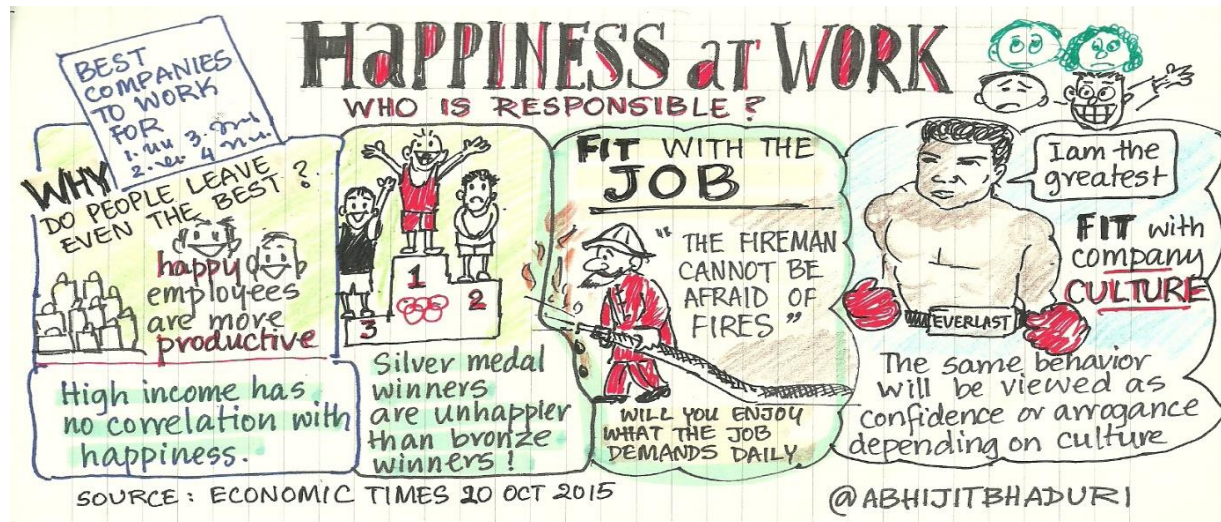 HAPPINESS at WORK
WHO IS RESPONSIBLE?
BEST
COMPANIES
TO WORK
FOR
1. 3.
2. 4
WHY
DO PEOPLE LEAVE
EVEN THE BEST?
happy
employees
are more
productive
High income has
no correlation with
happiness.
1
2
3
Silver medal
winners
are unhappier
than bronze
winners!
FIT WITH THE
JOB
"THE FIREMAN
CANNOT BE
AFRAID OF
FIRES"
WILL YOU ENJOY
WHAT THE JOB
DEMANDS DAILY
I am the
greatest
FIT with
company
CULTURE
EVERLAST
The same behavior
will be viewed as
confidence or arrogance
depending on culture
SOURCE: ECONOMIC TIMES 20 OCT 2015
@ABHIJITBHADURI